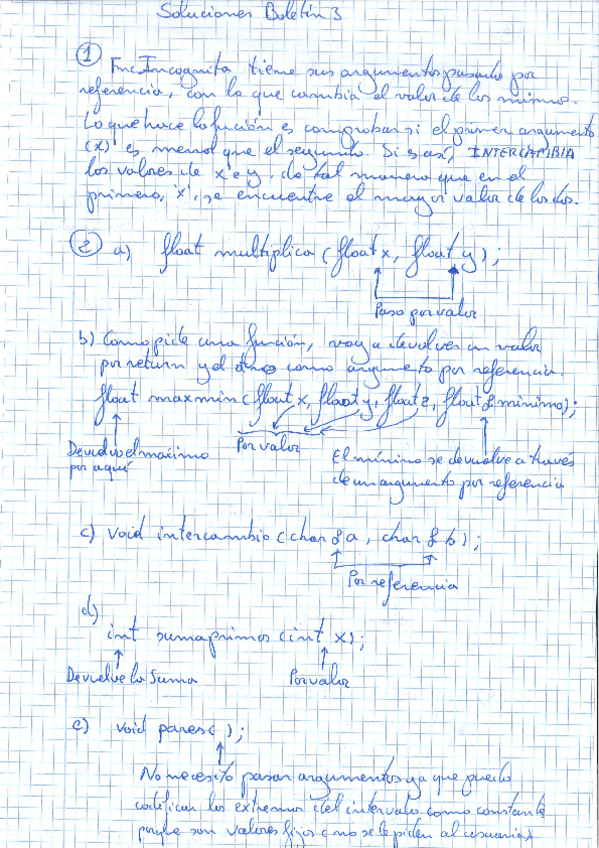 Soluciones Boletín 3
① Fnc.Incognita tiene sus argumentos pasados por
referencia, con lo que cambia el valor de los mismos.
Lo que hace la función es comprobar si el primer argumento
(x) es menor que el segundo. Si es así, INTERCAMBIA
los valores de x e y, de tal manera que en el
primero, 'x', se encuentre el mayor valor de los dos.
② a) float multiplica (float x, float y);
Paso por valor
b) Como pide una función, voy a devolver un valor
por return y el otro como argumento por referencia.
float maxmin (float x, float y, float z, float & minimo);
Devuelvo el maximo
por aquí
Por valor
El mínimo se devuelve a través
de un argumento por referencia
c) void intercambio (char & a, char & b);
Por referencia
d)
int sumaprimos (int x);
Devuelve la Suma
Por valor
e) void pares( );
No necesito pasar argumentos ya que puedo
codificar los extremos del intervalo como constante
porque son valores fijos (no se le piden al usuario)